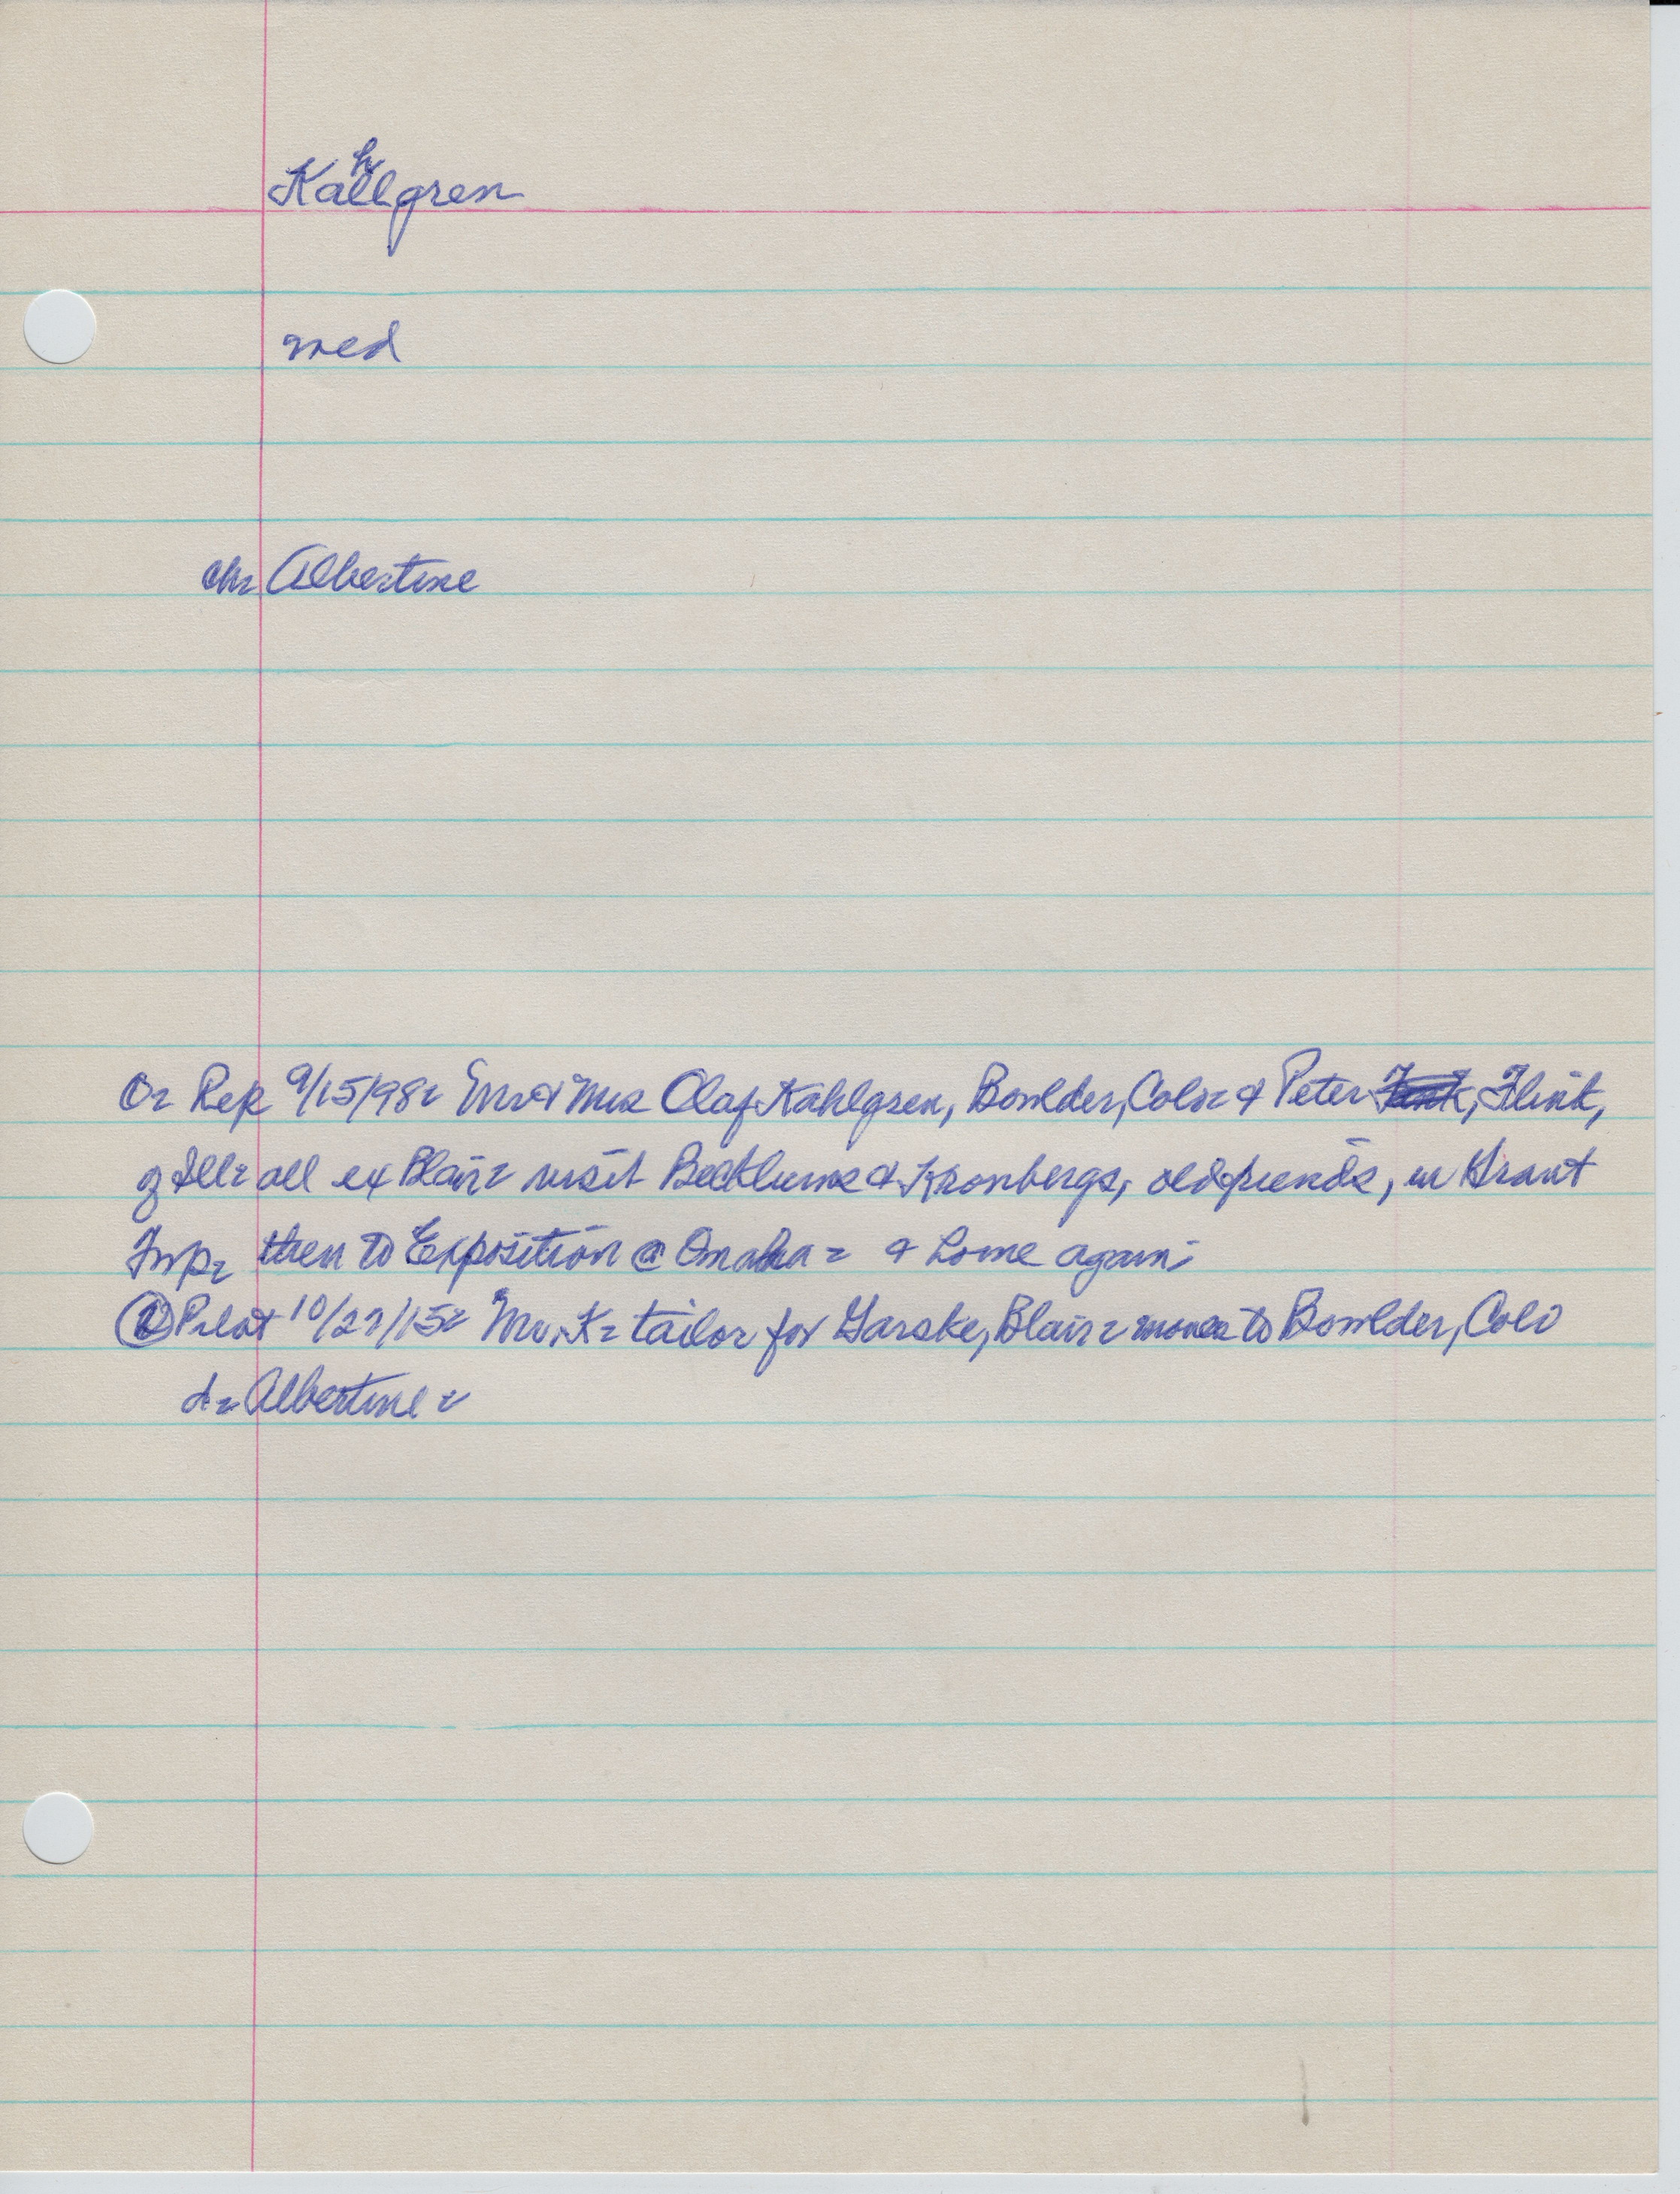 Kahlgren
med
ch- Albertine
O- Rep 9/15/98- Mr & Mrs Olaf Kahlgren, Boulder, Colo- & Peter Flink,
of Ill- all ex Blair- visit & Kronbergs, old friends, in Grant
Twp- then to Exposition @ Omaha- & home again-
Pilot 10/27/15- Mr. K- tailor for Garske, Blair- moves to Boulder, Colo
d- Albertine-